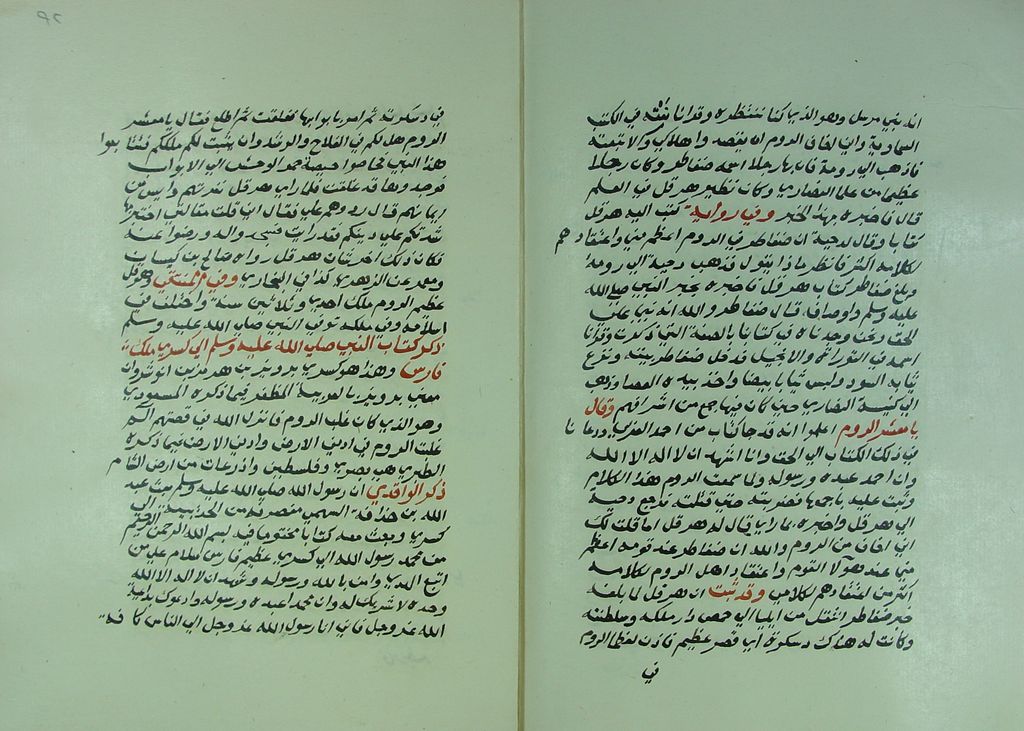 انه نبي مرسل وهو الذي كنا ننتظره وقرانا نعته في الكتب
السماوية واني لخائف الروم ان يقصدوا هلاكي والا تبعته
فاذهب الي رومة فان بها رجلا اسمه ضغاطر وكان رجلا
عظيما من علما النصاري وكان نظير هرقل في العلم
قال فاخبره بهذا الخبر وفي رواية كتب اليه هرقل
كتابا وقال لدحية ان ضغاطر في الروم اعظم مني واعتقادهم
لكلامه اكثر فانظر ماذا يقول فذهب دحية الي رومة
وبلغ ضغاطر كتاب هرقل فاخبره بخبر النبي صلي الله
عليه وسلم واوصافه قال ضغاطر والله انه نبي علي
الحق ونحن وجدناه في كتابنا بالصفة التي ذكرت وقرانا
اسمه في التوراة والانجيل فدخل ضغاطر بيته ونزع
ثيابه السود ولبس ثيابا بيضا واخذ بيده العصا وذهب
الي كنيسة النصاري حين كان فيها جمع من اشرافهم وقال
يا معشر الروم اعلموا انه قد جا كتاب من احمد العربي ودعانا
في ذلك الكتاب الي الحق وانا اشهد ان لا اله الا الله
وان احمد عبده ورسوله ولما سمعت الروم هذا الكلام
وثبت عليه باجمعها فضربته حتي قتلته فرجع دحية
الي هرقل واخبره بما راي قال له هرقل اما قلت لك
اني اخاف من الروم والله ان ضغاطر عند قومه اعظم
مني عند هولا القوم واعتقاد اهل الروم لكلامه
اكثر من اعتقادهم لكلامي وقد ثبت ان هرقل لما بلغه
خبر ضغاطر انتقل من ايليا الي حمص دار ملكه وسلطنته
وكانت له هناك دسكرة اي قصر عظيم فاذن لعظما الروم
في
في دسكرته ثم امر بابوابها فغلقت ثم اطلع فقال يا معشر
الروم هل لكم في الفلاح والرشد وان يثبت لكم ملككم فتتابعوا
هذا النبي فحاصوا حيصة حمر الوحش الي الابواب
فوجدوها قد غلقت فلما راي هرقل نفرتهم وايس من
ايمانهم قال ردوهم علي فقال اني قلت مقالتي اختبر بها
شدتكم علي دينكم فقد رايت فسجدوا له ورضوا عنه
فكان ذلك اخر شان هرقل رواه صالح بن كيسان
ومعمر عن الزهري كذا في البخاري وفي المنتقي وهرقل
عظيم الروم ملك احدي وثلاثين سنة واختلف في
اسلامه وفي ملكه توفي النبي صلي الله عليه وسلم
ذكر كتاب النبي صلي الله عليه وسلم الي كسري ملك
فارس وهذا هو كسري برويز بن هرمز بن انوشروان
معني برويز بالعربية المظفر فيما ذكره المسعودي
وهو الذي كان غلب الروم فانزل الله في قصتهم الم
غلبت الروم في ادني الارض وادني الارض فيما ذكره
الطبري هي بصري وفلسطين واذرعات من ارض الشام
ذكر الواقدي ان رسول الله صلي الله عليه وسلم بعث عبد
الله بن حذافة السهمي منصرفه من الحديبية الي
كسري وبعث معه كتابا مختوما فيه بسم الله الرحمن الرحيم
من محمد رسول الله الي كسري عظيم فارس سلام علي من
اتبع الهدي وامن بالله ورسوله وشهد ان لا اله الا الله
وحده لا شريك له وان محمدا عبده ورسوله وادعوك بداعية
الله عز وجل فاني انا رسول الله عز وجل الي الناس كافة